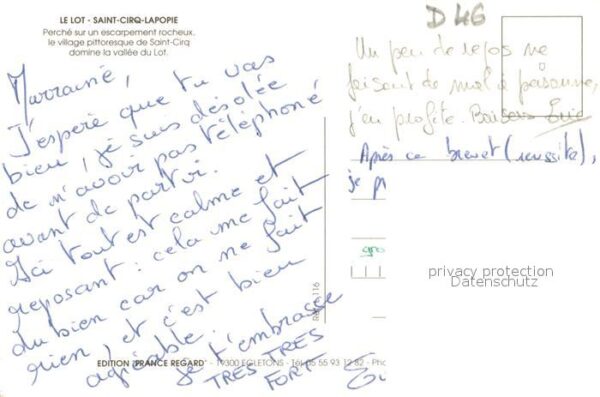 LE LOT - SAINT-CIRQ-LAPOPIE
Perché sur un escarpement rocheux,
le village pittoresque de Saint-Cirq
domine la vallée du Lot.
Marraine,
J'espère que tu vas
bien, je suis désolée
de n'avoir pas téléphoné
avant de partir.
Ici tout est calme et
reposant : cela me fait
du bien car on ne fait
rien, et c'est bien
agréable.
je t'embrasse
TRES TRES
FORT
EDITION "FRANCE REGARD" - 19300 EGLETONS - Tél. 05 55 93 12 82 - Pho
116
D 46
Un peu de repos ne
faisant de mal à personne,
j'en profite. Baisers
Après ce brevet (réussite),
je p
gro
privacy protection
Datenschutz